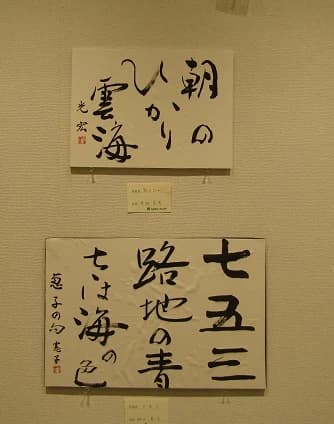 朝の
ひかり
雲海
光宏
七五三
路地の青
さは海の色